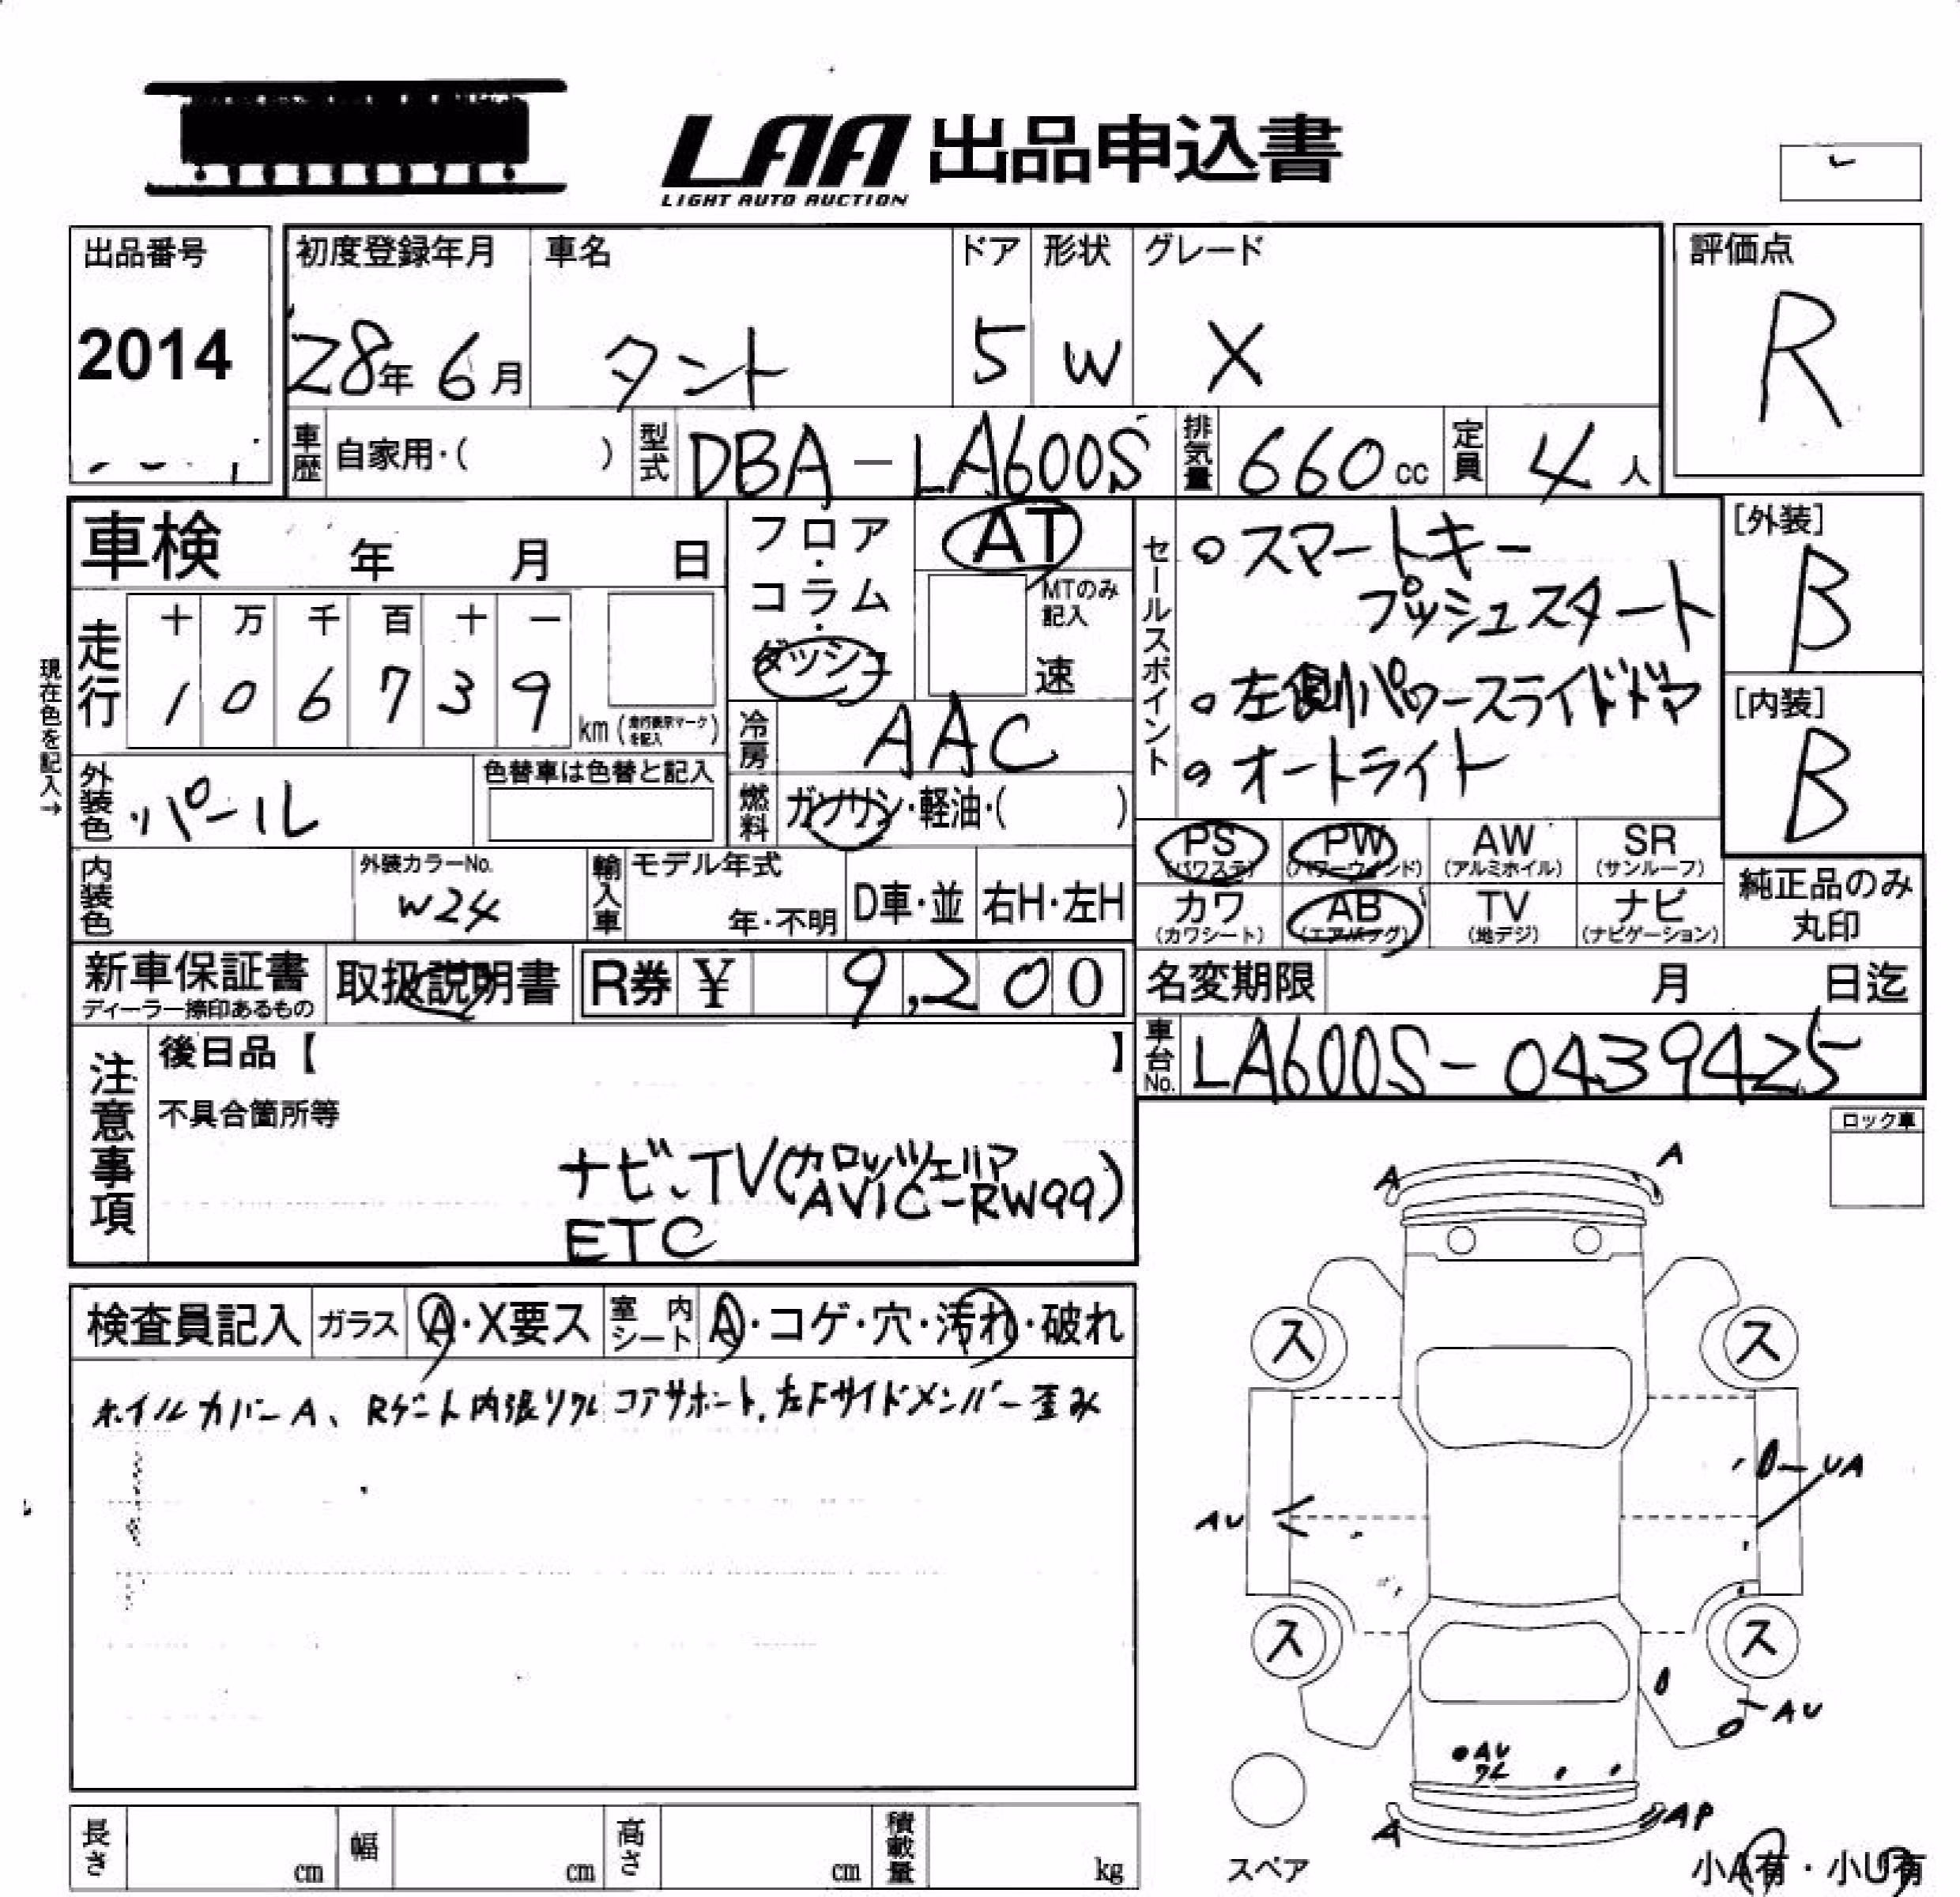 LAA 出品申込書
LIGHT AUTO AUCTION
出品番号
2014
初度登録年月
28年 6月
車名
タント
ドア
5
形状
W
グレード
X
評価点
R
車歴 自家用・( )
型式 DBA-LA600S
排気量 660 cc
定員 4 人
車検 年 月 日
現在色を記入→
走行
十 万 千 百 十 一
1 0 6 7 3 9
km (走行表示マークを記入)
フロア・コラム・ダッシュ
AT
MTのみ記入
速
冷房 AAC
燃料 ガソリン・軽油・( )
セールスポイント
○スマートキー
プッシュスタート
○左側パワースライドドア
○オートライト
[外装]
B
[内装]
B
外装色 パール
色替車は色替と記入
内装色
外装カラーNo.
W24
輸入車 モデル年式
年・不明
D車・並
右H・左H
PS (パワステ)
PW (パワーウインド)
AW (アルミホイル)
SR (サンルーフ)
カワ (カワシート)
AB (エアバッグ)
TV (地デジ)
ナビ (ナビゲーション)
純正品のみ
丸印
新車保証書
ディーラー捺印あるもの
取扱説明書
R券 ¥ 9,200
名変期限 月 日迄
車台No. LA600S-0439425
注意事項
後日品【 】
不具合箇所等
ナビ、TV(カロッツェリア
AVIC-RW99)
ETC
ロック車
検査員記入
ガラス A・X要ス
室内シート A・コゲ・穴・汚れ・破れ
ホイルカバーA、Rゲート内張りワレ コアサポート、左Fサイドメンバー歪み
A
A
ス
ス
UA
AU
ス
ス
AU
AU
ワレ
A
AP
スペア
小A有・小U有
長さ cm
幅 cm
高さ cm
積載量 kg